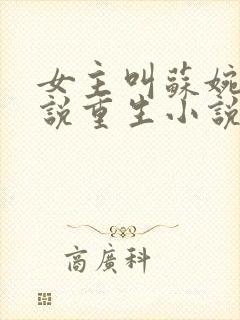 女主叫蘇婉
說重生小說
商廣科